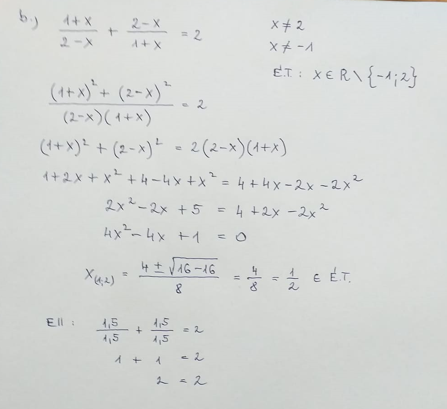 b.) (1+x)/(2-x) + (2-x)/(1+x) = 2
x ≠ 2
x ≠ -1
É.T.: x ∈ R \ {-1; 2}
((1+x)² + (2-x)²)/((2-x)(1+x)) = 2
(1+x)² + (2-x)² = 2(2-x)(1+x)
1+2x+x²+4-4x+x² = 4+4x-2x-2x²
2x²-2x+5 = 4+2x-2x²
4x²-4x+1 = 0
x(1,2) = (4±√(16-16))/8 = 4/8 = 1/2 ∈ É.T.
Ell: 1,5/1,5 + 1,5/1,5 = 2
1 + 1 = 2
2 = 2